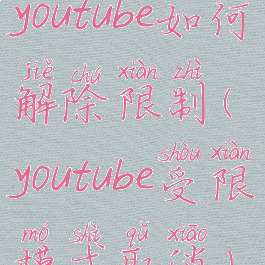 youtube如何
jiě chú xiàn zhì
解除限制(
shòu xiàn
youtube受限
mó shì qǔ xiāo
模式取消)